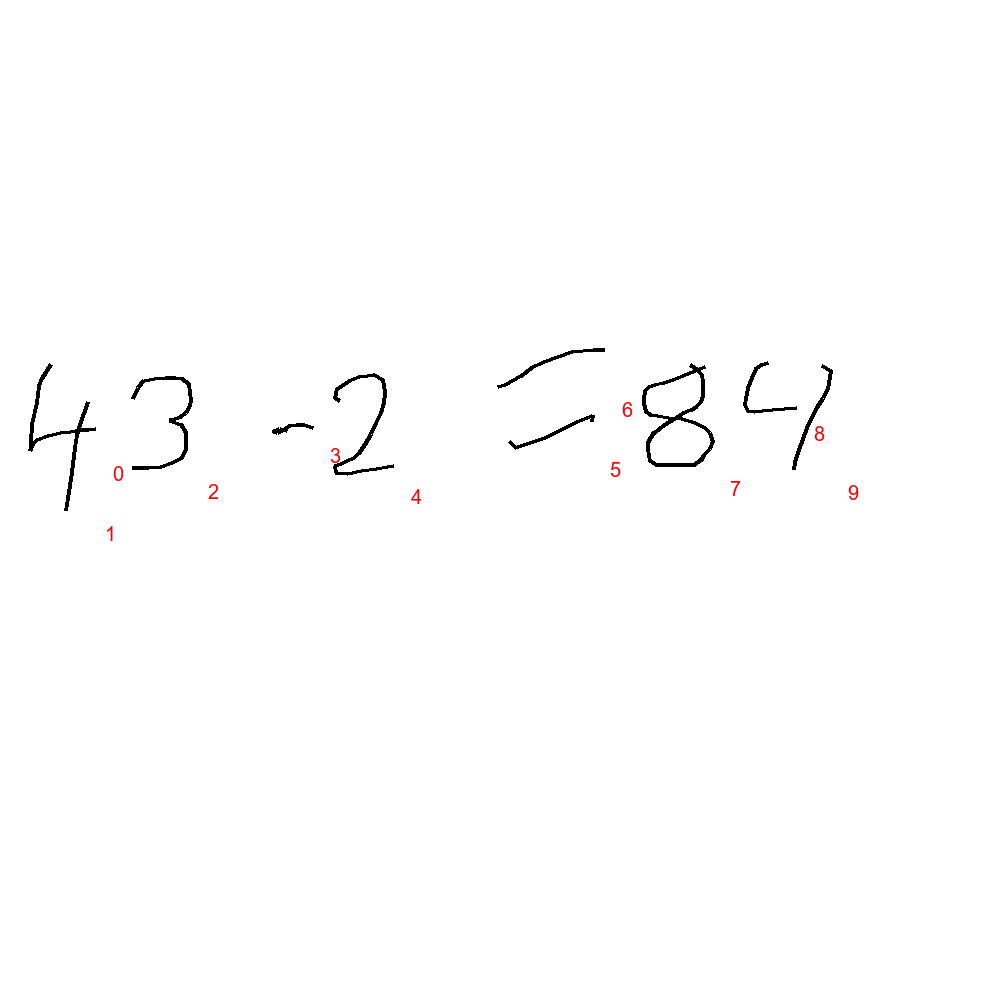 43 - 2 = 84
0 1 2 3 4 5 6 7 8 9